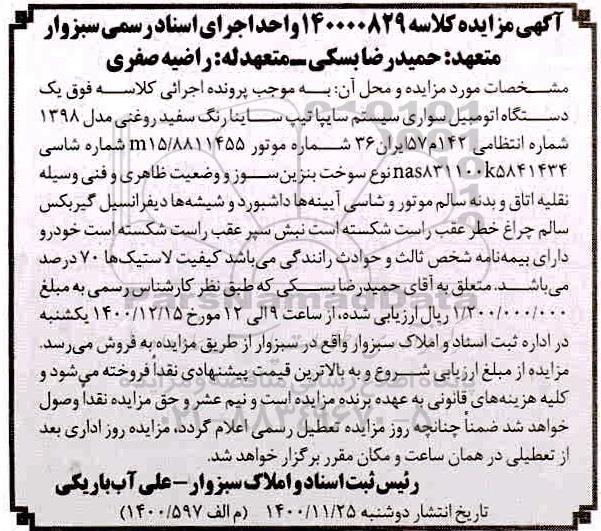 آگهی مزایده کلاسه ۱۴۰۰۰۰۸۲۹ واحد اجرای اسناد رسمی سبزوار
متعهد: حمیدرضا بسکی ـ متعهدله: راضیه صفری
مشخصات مورد مزایده و محل آن: به موجب پرونده اجرائی کلاسه فوق یک
دستگاه اتومبیل سواری سیستم سایپا تیپ ساینا رنگ سفید روغنی مدل ۱۳۹۸
شماره انتظامی ۱۴۲م۵۷ایران۳۶ شماره موتور m۱۵/۸۸۱۱۴۵۵ شماره شاسی
nas۸۳۱۱۰۰k۵۸۴۱۴۳۴ نوع سوخت بنزین سوز و وضعیت ظاهری و فنی وسیله
نقلیه اتاق و بدنه سالم موتور و شاسی آیینه‌ها داشبورد و شیشه‌ها دیفرانسیل گیربکس
سالم چراغ خطر عقب راست شکسته است نبش سپر عقب راست شکسته است خودرو
دارای بیمه‌نامه شخص ثالث و حوادث رانندگی می‌باشد کیفیت لاستیک‌ها ۷۰ درصد
می‌باشد. متعلق به آقای حمیدرضا بسکی که طبق نظر کارشناس رسمی به مبلغ
۱/۲۰۰/۰۰۰/۰۰۰ ریال ارزیابی شده، از ساعت ۹ الی ۱۲ مورخ ۱۴۰۰/۱۲/۱۵ یکشنبه
در اداره ثبت اسناد و املاک سبزوار واقع در سبزوار از طریق مزایده به فروش می‌رسد.
مزایده از مبلغ ارزیابی شروع و به بالاترین قیمت پیشنهادی نقداً فروخته می‌شود و
کلیه هزینه‌های قانونی به عهده برنده مزایده است و نیم عشر و حق مزایده نقداً وصول
خواهد شد ضمناً چنانچه روز مزایده تعطیل رسمی اعلام گردد، مزایده روز اداری بعد
از تعطیلی در همان ساعت و مکان مقرر برگزار خواهد شد.
رئیس ثبت اسناد و املاک سبزوار – علی آب‌باریکی
تاریخ انتشار دوشنبه ۱۴۰۰/۱۱/۲۵ (م الف ۱۴۰۰/۵۹۷)